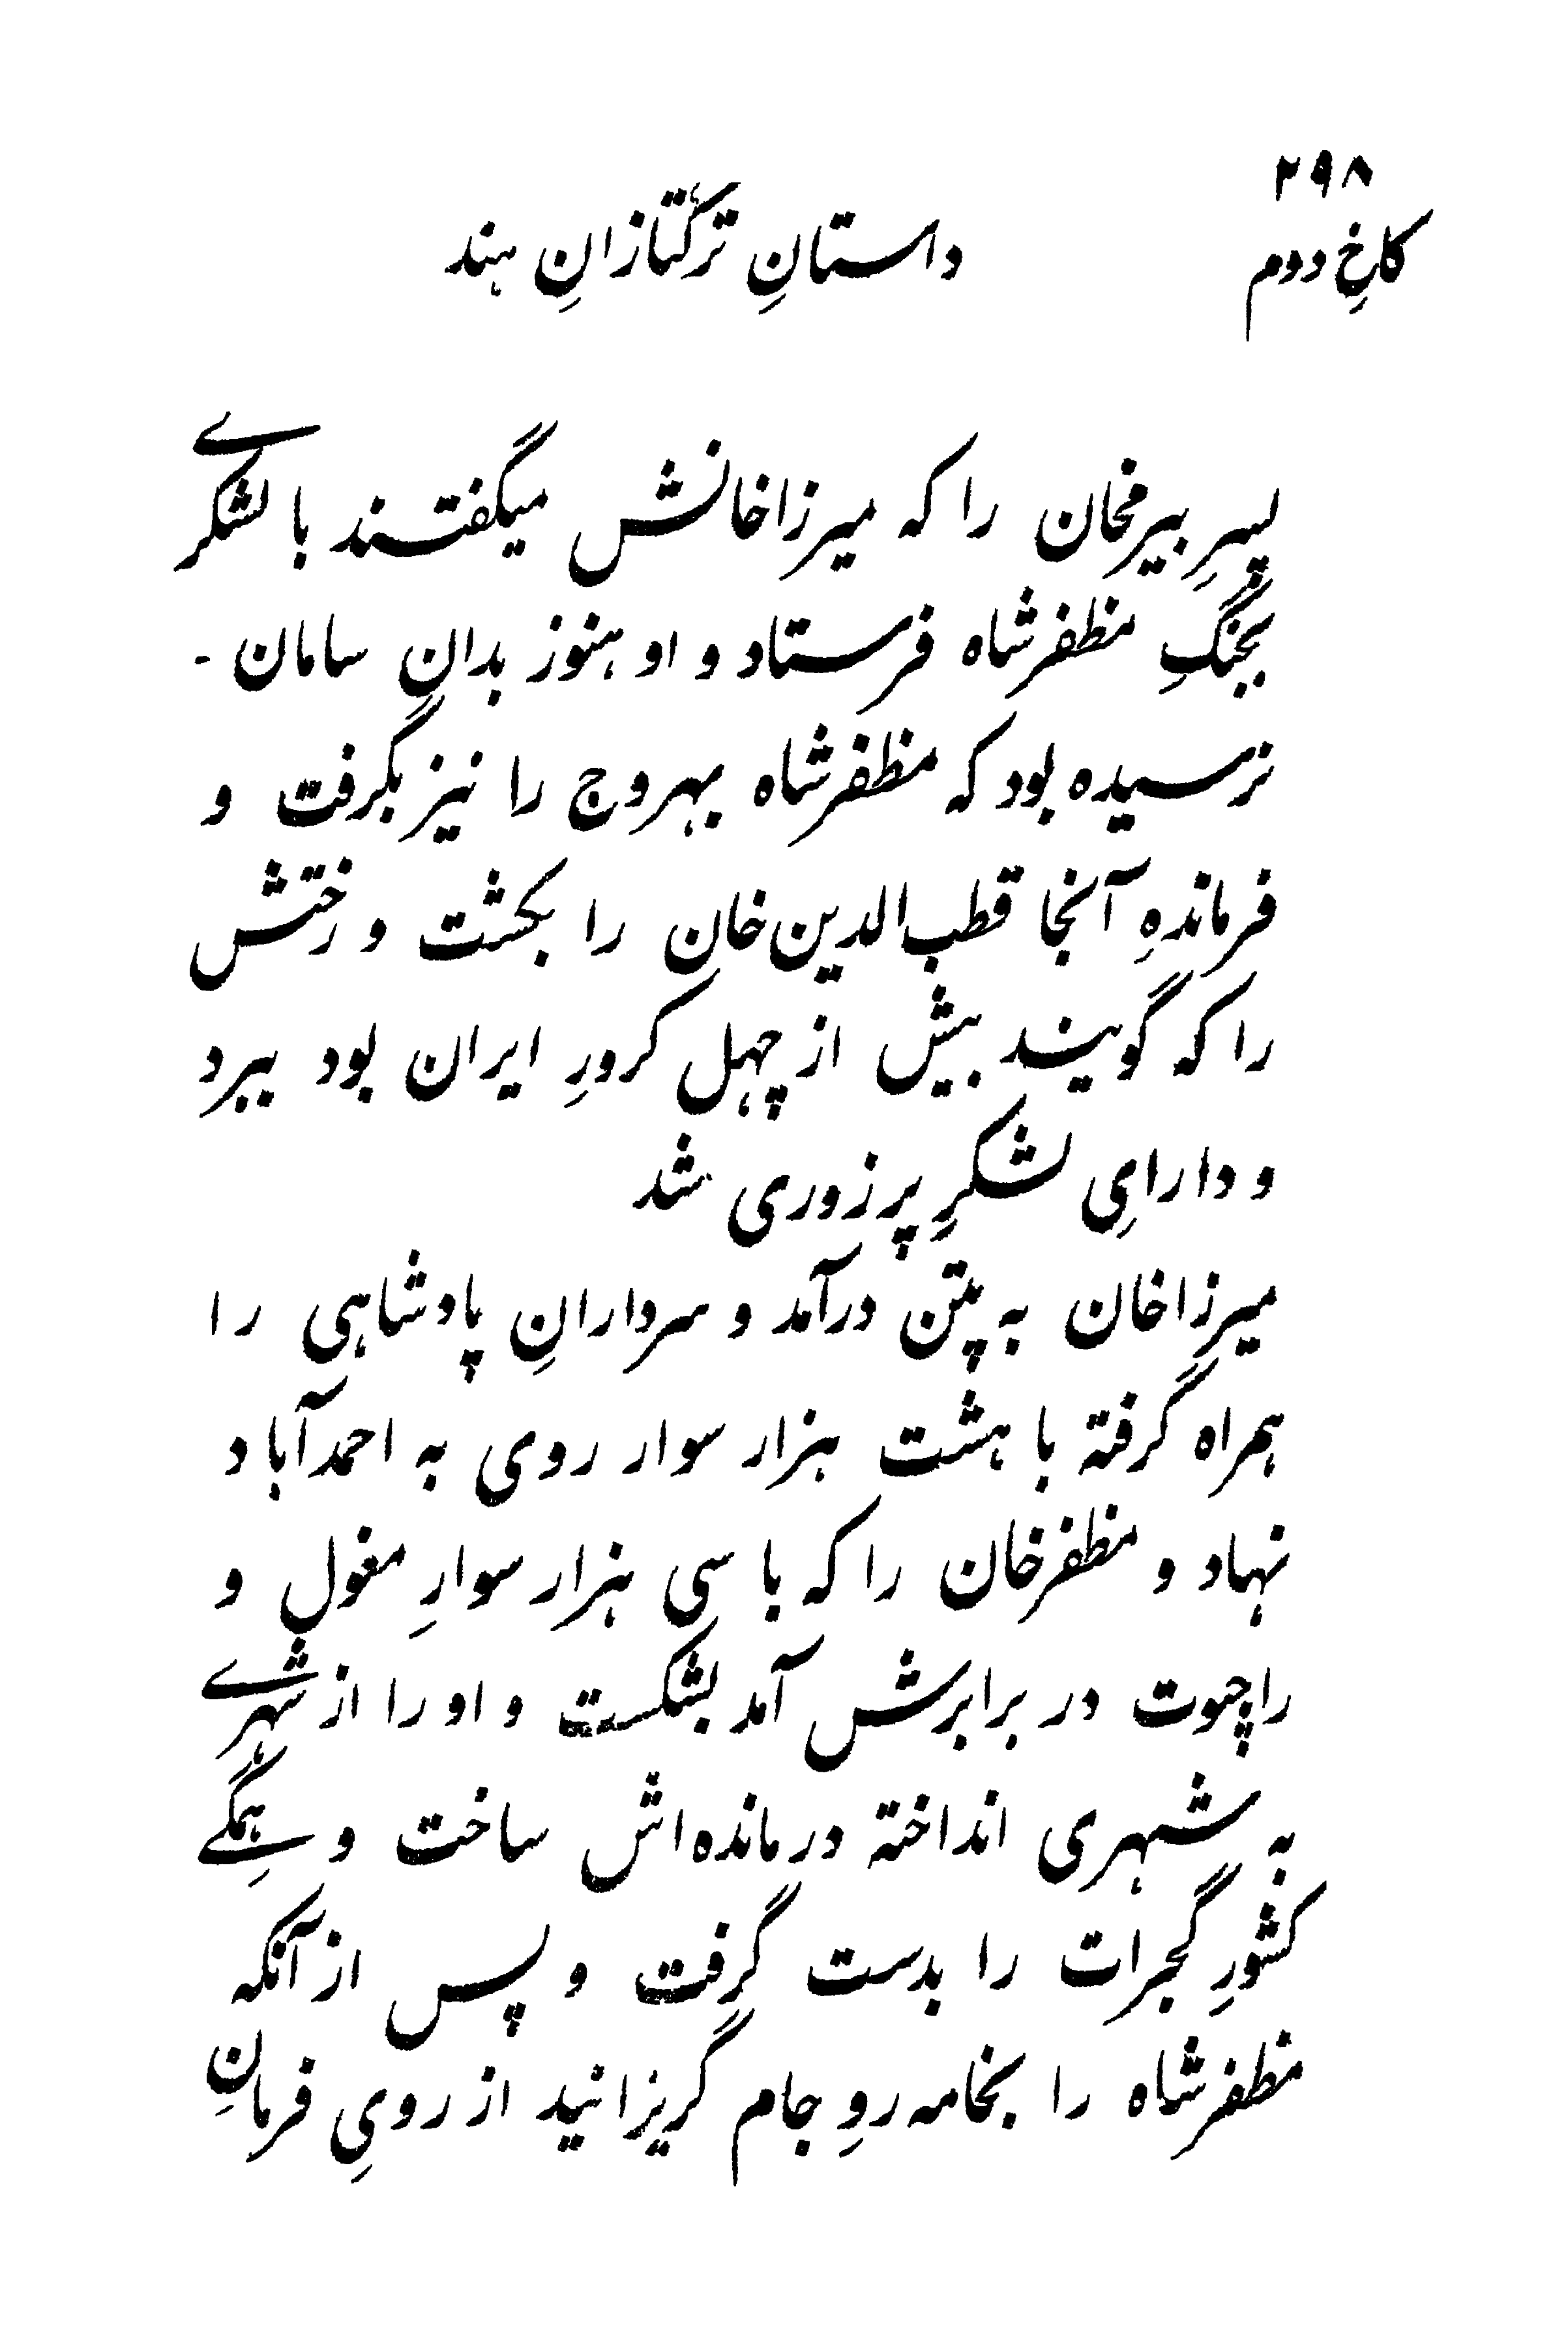 ۲۹۸
کاخِ دوم داستانِ ترکتازانِ هند
پسرِ بیرمخان را که میرزاخانش میگفتند با لشکرے
بجنگِ مظفرشاه فرستاد و او هنوز بدان سامان -
نرسیده بود که مظفرشاه بهروج را نیز بگرفت و
فرماندهِ آنجا قطب‌الدین‌خان را بکشت و رختش
را که گویند بیش از چهل کرورِ ایران بود ببرد
و دارایِ لشکرِ پرزوری شد
میرزاخان به پتن درآمد و سردارانِ پادشاهی را
همراه گرفته با هشت هزار سوار روی به احمدآباد
نهاد و مظفرخان را که با سی هزار سوارِ مغول و
راچپوت در برابرش آمد بشکست و او را از شهرے
به شهری انداخته درمانده‌اش ساخت و همگےِ
کشورِ گجرات را بدست گرفت و پس از آنکه
مظفرشاه را بخامه‌روِ جام گریزانید از رویِ فرمانِ